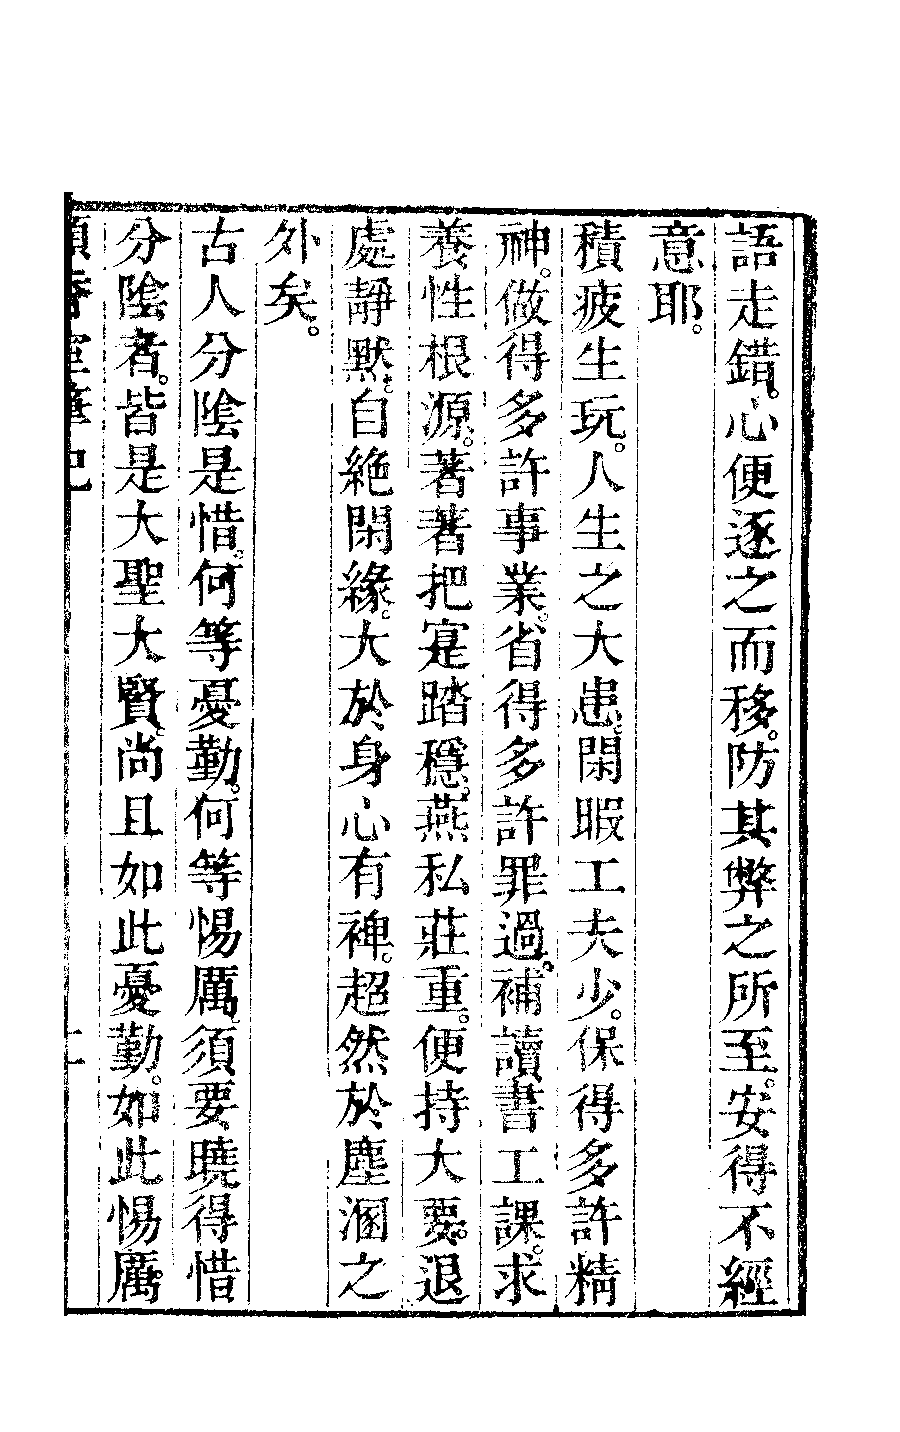 語走錯。心便逐之而移。防其弊之所至。安得不經
意耶。
積疲生玩。人生之大患。閑暇工夫少。保得多許精
神。做得多許事業。省得多許罪過。補讀書工課。求
養性根源。著著把定踏穩。燕私莊重。便持大要。退
處靜默。自絶閑緣。大於身心有裨。超然於塵溷之
外矣。
古人分陰是惜。何等憂勤。何等惕厲。須要曉得惜
分陰者。皆是大聖大賢。尚且如此憂勤。如此惕厲。